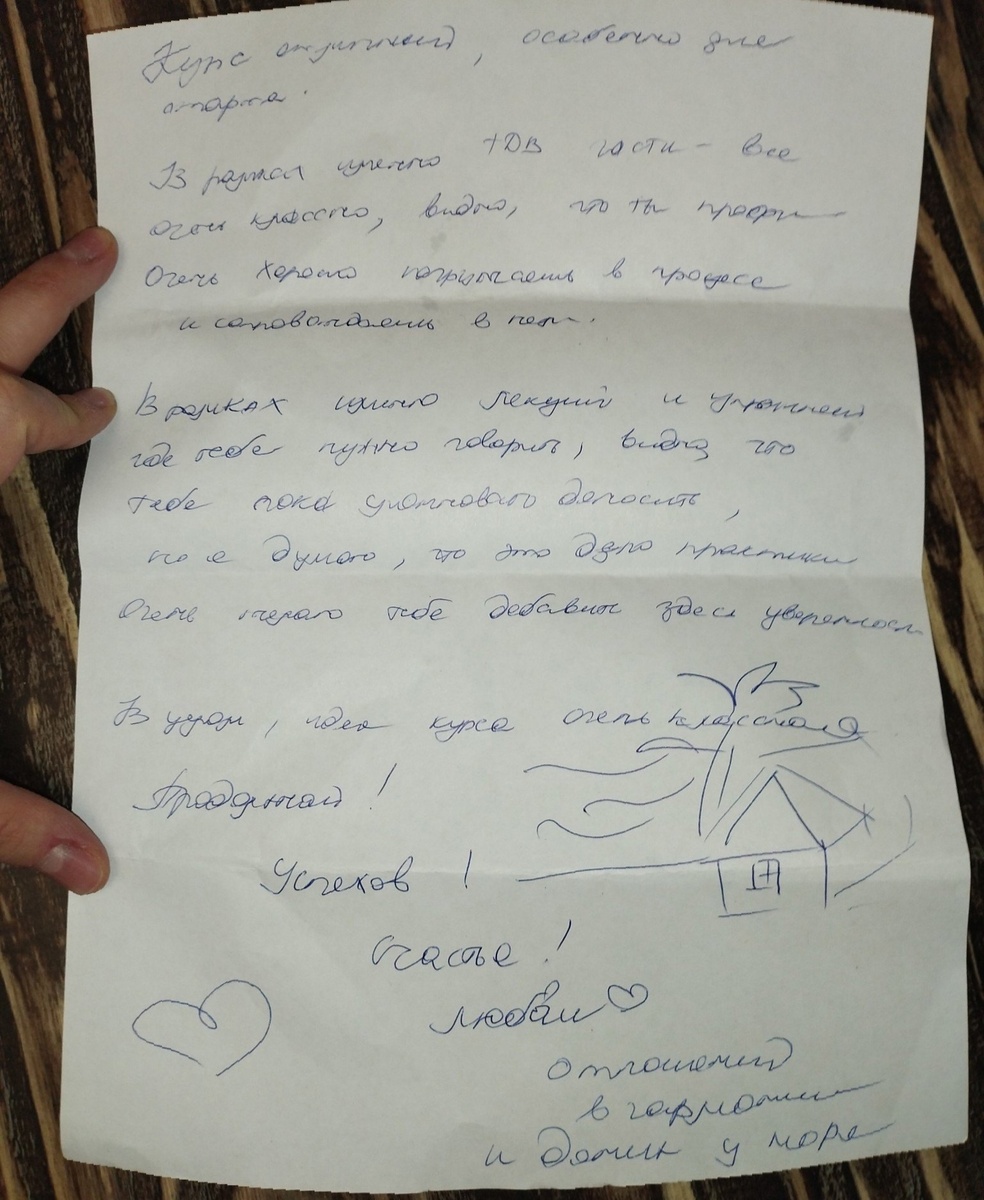 Курс отличный, особенно для
старта.
В рамках именно части - все
очень классно, видно, что ты профи
Очень хорошо погружаешь в процесс
и сопровождаешь в нем.
В рамках именно лекций и
где тебе нужно говорить, видно, что
тебе пока доносить,
но я думаю, что это дело практики
Очень желаю тебе добавить здесь уверенности
В целом, идея курса очень классная
Продолжай!
Успехов!
Счастье!
Любви
Отношений
в гармонии
и домик у моря